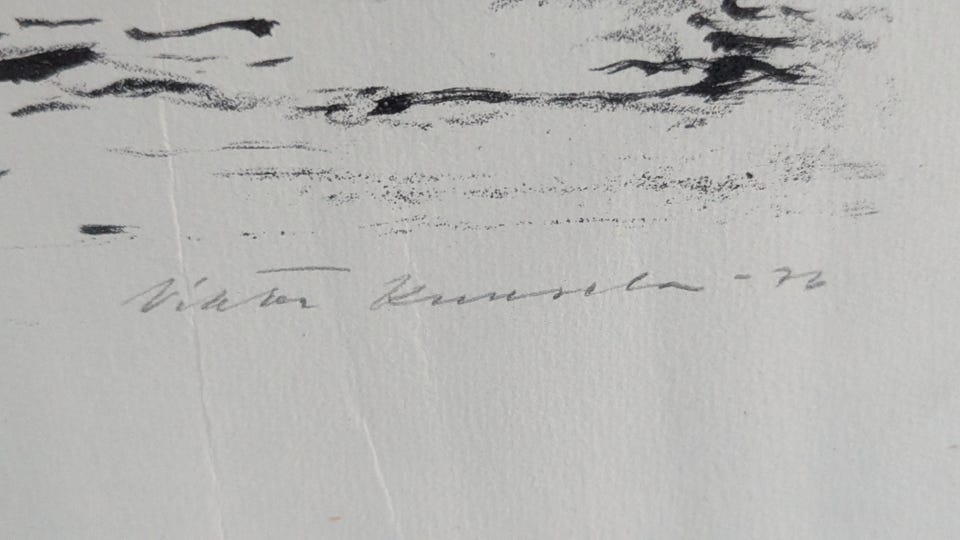 Viktor Kuusela -76